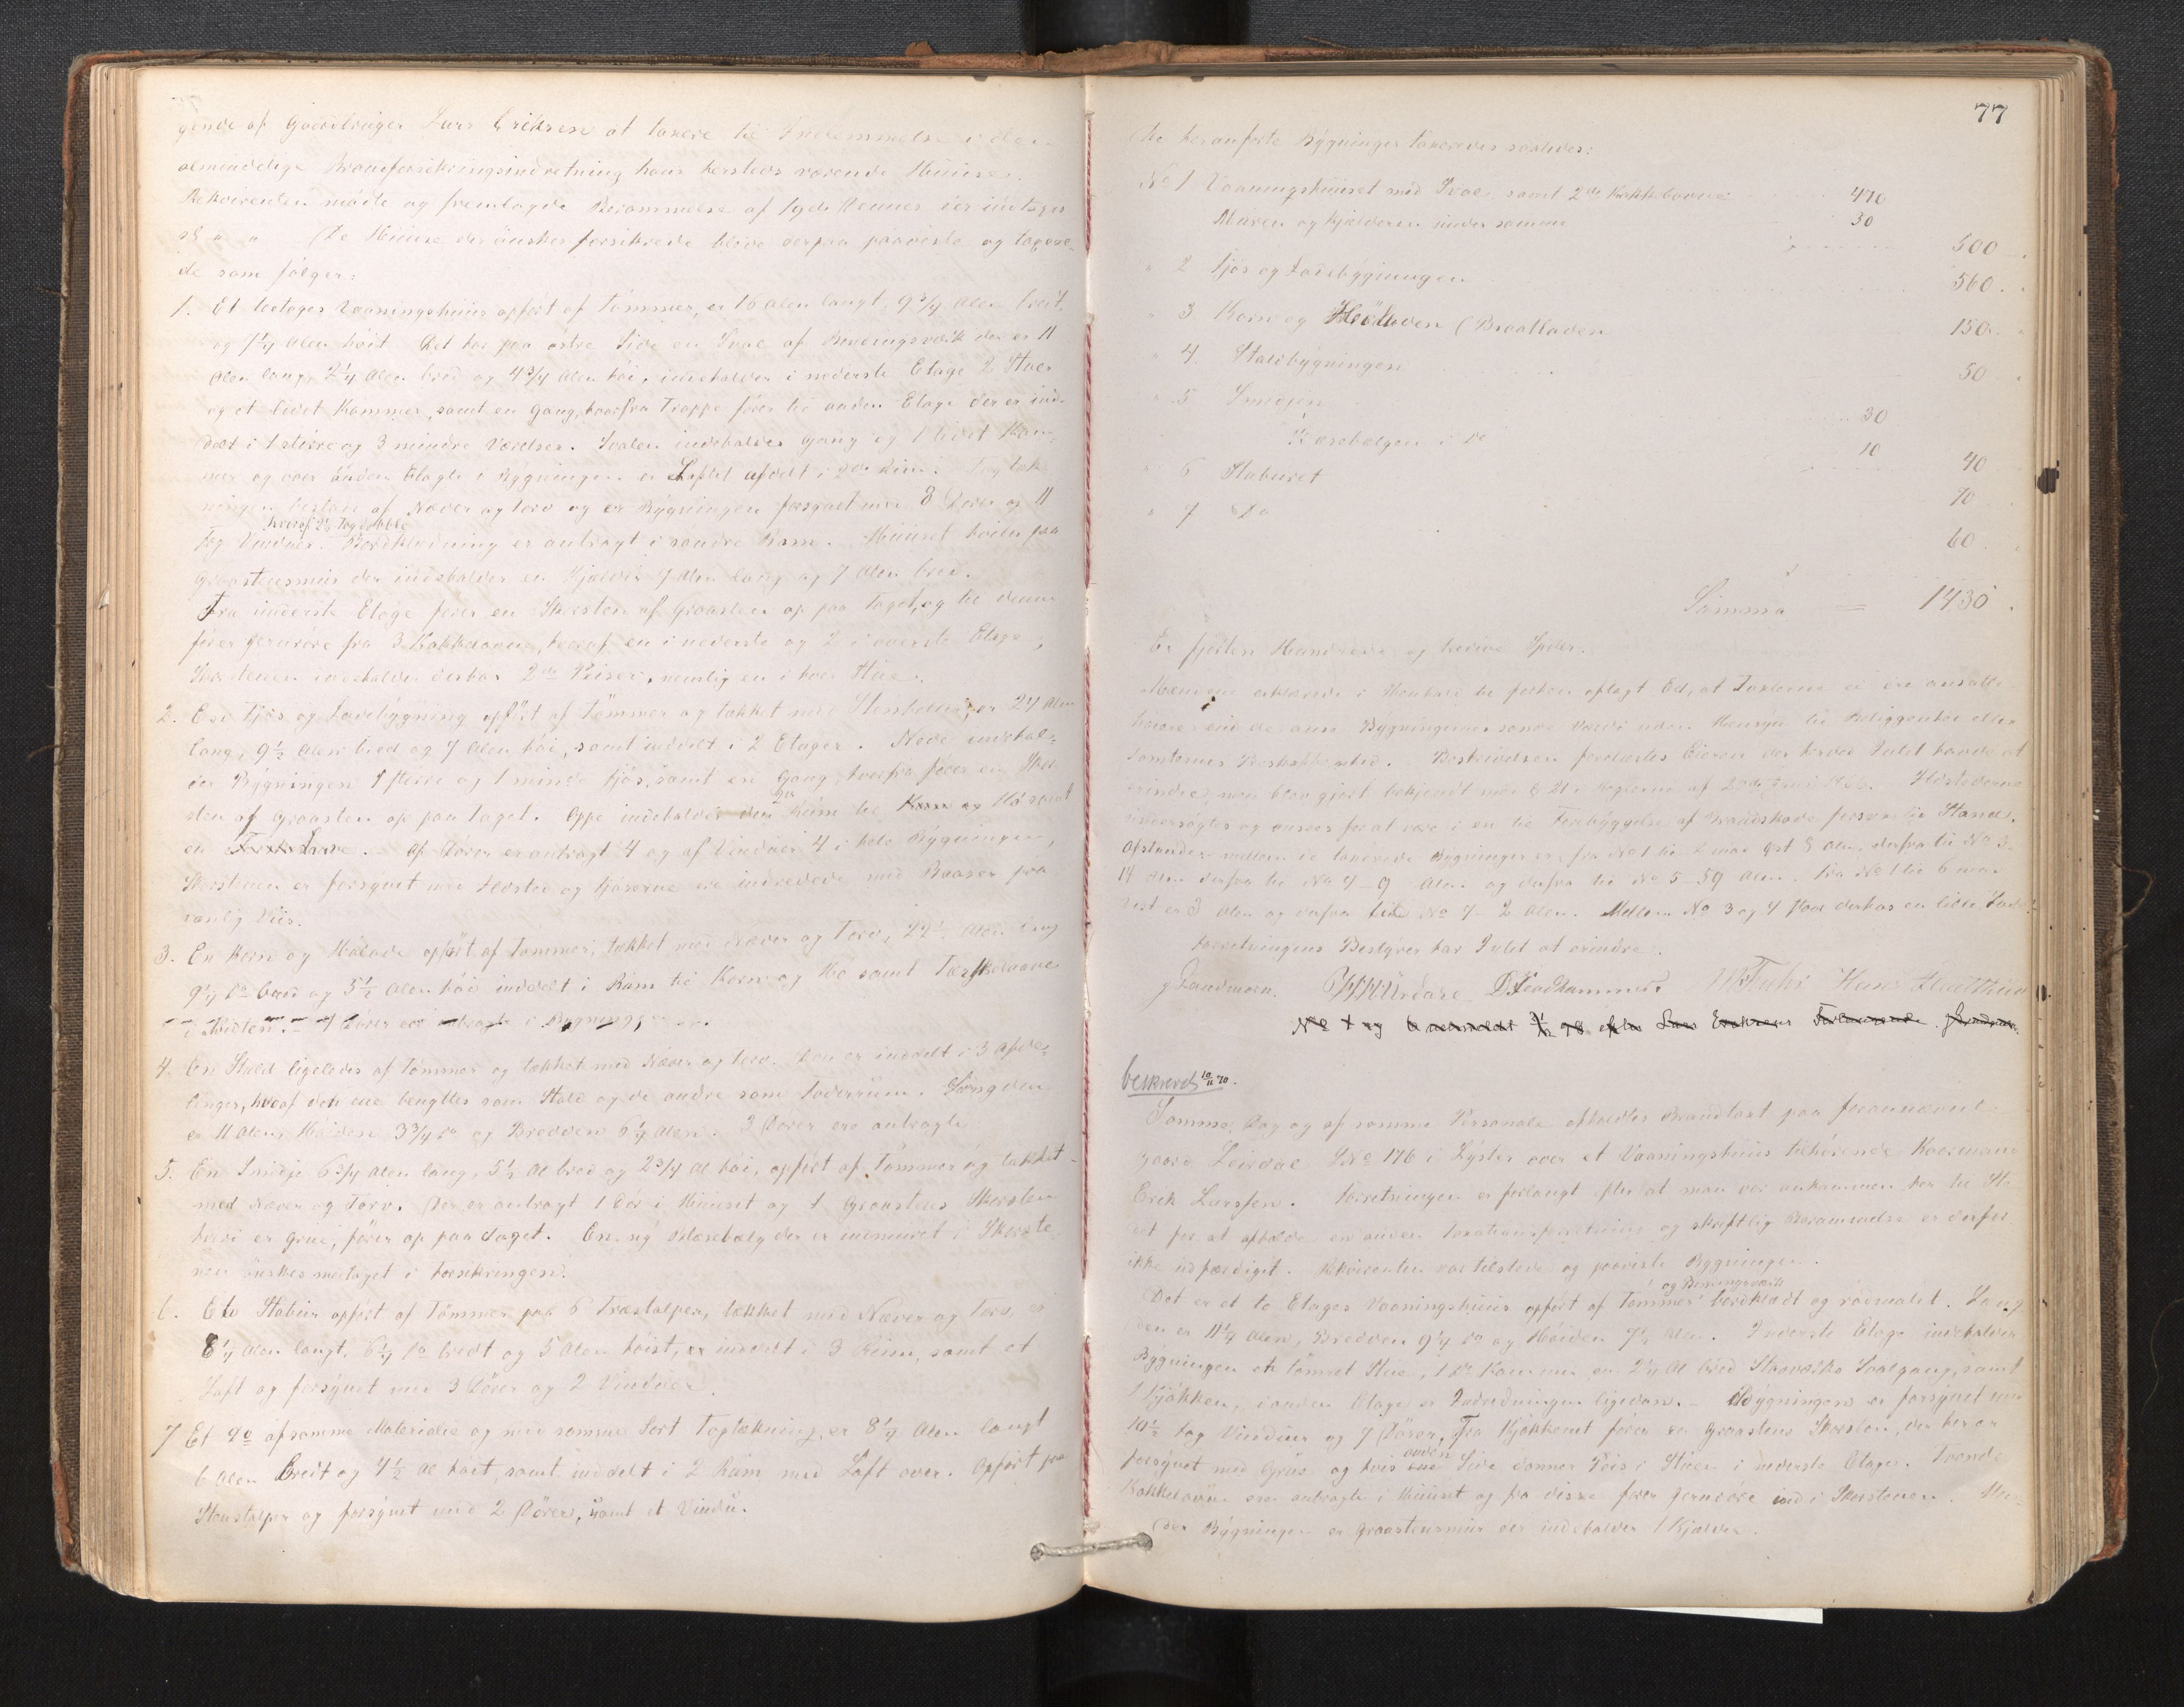 gende af Gaardbruger Lars Eriksen at taxere til Indlemmelse i den
almindelige Brandforsikringsindretning hans hersteds værende Huuse.
Rekvirenten mødte og fremlagde Berammelse af 19de Dennes der indtages
(De Huuse der ønskes forsikrede blive derpaa paaviste og taxere-
de som følger:
1. Et toetages Vaaningshuus opført af Tømmer, er 16 Alen langt, 9 3/4 Alen bredt,
og 7 1/4 Alen høit. Det har paa østre Side en Sval af Bindingsværk der er 11
Alen lang, 2 1/4 Alen bred og 4 3/4 Alen høi, indeholder i nederste Etage 2 Stuer
og et lidet Kammer, samt en Gang, hvorfra Trappe fører til anden Etage der er ind-
delt i 1 større og 3 mindre Værelser. Svalen indeholder Gang og 1 lidet Kam-
mer og over anden Etage i Bygningen er Loftet afdelt i 2de Rum. Tagtæk-
ningen bestaar af Næver og Torv og er Bygningen forsynet med 8 Døre og 11
hvoraf 2 1/2 Fag dobble
Fag Vinduer. Bordklædning er anbragt i søndre Ram. Huuset hviler paa
Graasteensmuur der indeholder en Kjælder 9 Alen lang og 7 Alen bred.
Fra underste Etage fører en Skorsten af Graasteen op paa Taget, og til denne
fører Jernrøre fra 3 Kakkelovne, hvoraf en i nederste og 2 i øverste Etage,
Skorstenen indeholder derhos 2de Peiser, nemlig en i hver Stue.
2. En Fjøs og Ladebygning opført af Tømmer og tækket med Steenheller, er 24 Alen
lang, 9 1/2 Alen bred og 7 Alen høi, samt inddelt i 2 Etager. Nede indehol-
der Bygningen 1 større og 1 mindre Fjøs, samt en Gang, hvorfra fører en Skor-
sten af Graasten op paa Taget. Oppe indeholder den 2de Rum til Korn og Hø samt
en . Af Døre er anbragt 4 og af Vinduer 4 i hele Bygningen,
Skorstenen er forsynet med Ildsted og Fjøserne ere indredede med Baaser paa
vanlig Viis.
3. En Korn og Hølade opført af Tømmer, tækket med Næver og Torv, 22 1/2 Alen lang
9 1/4 Do bred og 5 1/2 Alen høi inddelt i Rum til Korn og Hø samt Tærskelaave
i Midten. 4 Døre ere anbragte i Bygningen.
4. En Stald ligeledes af Tømmer og tækket med Næver og Torv. Den er inddelt i 3 Afde-
linger, hvoraf den ene benyttes som Stald og de andre som Foderrum. Længden
er 11 Alen, Høiden 3 3/4 Do og Bredden 6 1/4 Alen. 3 Døre ere anbragte
5. En Smidje 6 3/4 Alen lang, 5 1/2 Al bred og 2 3/4 Al høi, opført af Tømmer og tækket
med Næver og Torv. Der er anbragt 1 Dør i Huuset og 1 Graasteens Skorsten
hvori er Grue, fører op paa Taget. En ny Blæsebælg der er indmuret i Skorste-
nen ønskes medtaget i Forsikringen.
6. Et Stabur opført af Tømmer paa 6 Træstolper, tækket med Næver og Torv, er
8 1/4 Alen langt, 6 1/4 Do bredt og 5 Alen høist, er inddelt i 3 Rum, samt et
Loft og forsynet med 3 Døre og 2 Vinduer.
7 Et Do af samme Materialie og med samme Sort Tagtækning, er 8 1/4 Alen langt
6 Alen bredt og 4 1/2 Al høit, samt inddelt i 2 Rum med Loft over. Opført paa
Steenstolper og forsynet med 2 Døre, samt et Vindu.
77
De heranførte Bygninger taxeredes saaledes:
No 1 Vaaningshuuset med Sval samt 2de Kakkelovne 470
Muren og Kjælderen under samme 30
500
" 2 Fjøs og Ladebygningen 560
" 3 Korn og Høladen (Braatladen 150
" 4. Staldbygningen 50
" 5 Smidjen 30
Blæsebælgen i Do 10
40
" 6 Staburet 70
" 7 Do 60
Summa = 1430.
Er fjorten Hundrede og tredive Spdlr.
Mændene erklærede i Henhold til forhen aflagt Ed, at Taxterne ei ere ansatte
høiere end de anse Bygningernes sande Værdi uden Hensyn til Beliggenhed eller
Tomternes Beskaffenhed. Beskrivelsen forelæstes Eieren der herved Intet havde at
erindre, men blev gjort bekjendt med § 21 i af 20de Juni . Ildstederne
undersøgtes og ansees for at være i en til Forebyggelse af Brandskade forsvarlig Stand.
Afstanden mellem de taxerede Bygninger er: fra No 1 til 2 mod Øst 8 Alen, derfra til No 3-
14 Alen derfra til No 4 - 9 Alen og derfra til No 5 - 59 Alen. Fra No 1 til 6 mod
Vest er 3 Alen og derfra til No 7 - 2 Alen. Mellem No 3 og 4 staar derhos en liden Lade.
Forretningens Bestyrer har Intet at erindre.
J Landmoen. D Leadhammer. Hans
No 1 og 6 Lars Eriksens Forlangende
beskrevet 10/11 70.
Samme Dag og af samme Personale afholdtes Brandtaxt paa forannævnte
Gaard Leirdal LNo 176 i Lyster over et Vaaningshuus tilhørende Kaarmand
Erik Larssen. Forretningen er forlangt efter at man var ankommen her til Ste-
det for at afholde en anden Taxationsforretning og skriftlig Berammelse er derfor
ikke udfærdiget. Rekvirenten var tilstede og paaviste Bygningen.
og Bindingsværk
Det er et to Etages Vaaningshuus opført af Tømmer bordklædt og rødmalet. Læng-
den er 11 1/4 Alen, Bredden 9 1/4 Do og Høiden 7 1/4 Alen. I nederste Etage indeholder
Bygningen et tømret Stue, 1 do Kammer en 2 1/4 Al bred Svalgang, samt
1 Kjøkken, i anden Etage er Indredningen ligedan. Bygningen er forsynet med
10 1/2 Fag Vinduer og 7 Døre, Fra Kjøkkenet fører en Graasteens Skorsten, der her er
forsynet med Grue og hvis anden Side danner Peis i Stuen i nederste Etage. Tvende
Kakkelovne ere anbragte i Huuset og fra disse fører Jernrøre ind i Skorstenen. Un-
der Bygningen er Graasteensmuur der indeholder 1 Kjælder.